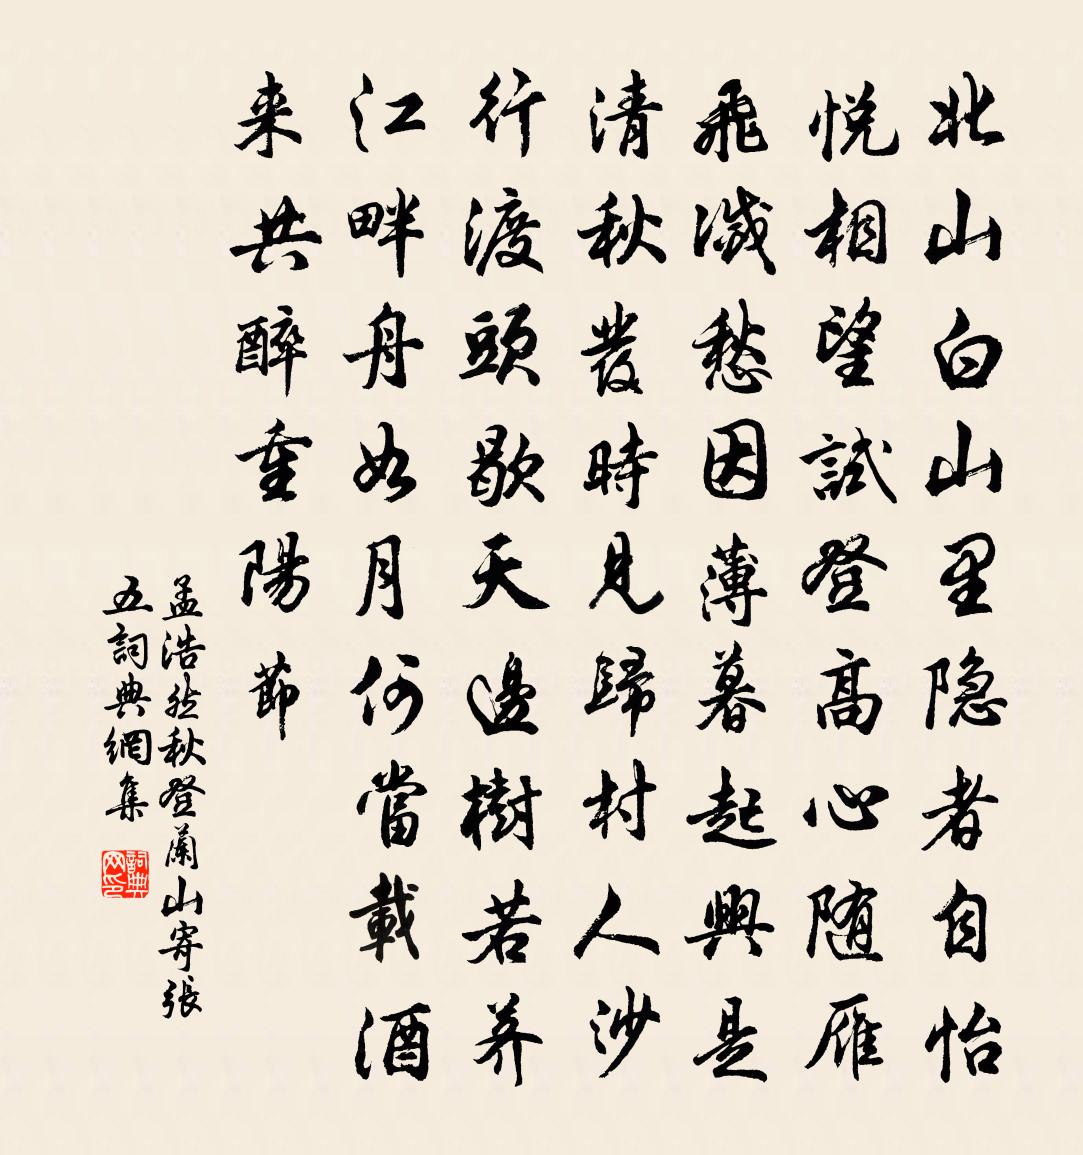 北山白山里隐者自怡
悦相望試登高心随雁
飛滅愁因薄暮起興是
清秋發時見歸村人沙
行渡頭歇天邊樹若荠
江畔舟如月何當載酒
来共醉重陽節
孟浩然秋登蘭山寄張
五詞典網集
詞典网印